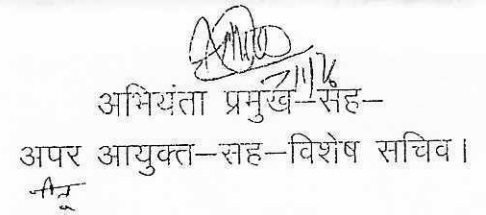 अभियंता प्रमुख–सह–
अपर आयुक्त–सह–विशेष सचिव।
नीतू